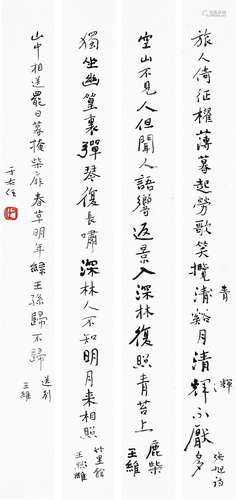 旅人倚征櫂薄暮起勞歌笑攬清谿月清輝不厭多
青
輝
張旭詩
空山不見人但聞人語響返景入深林復照青苔上
鹿柴
王維
獨坐幽篁裏彈琴復長嘯深林人不知明月来相照
竹里館
王維
山中相送罷日暮掩柴扉春草明年綠王孫歸不歸
送別
王維
于右任